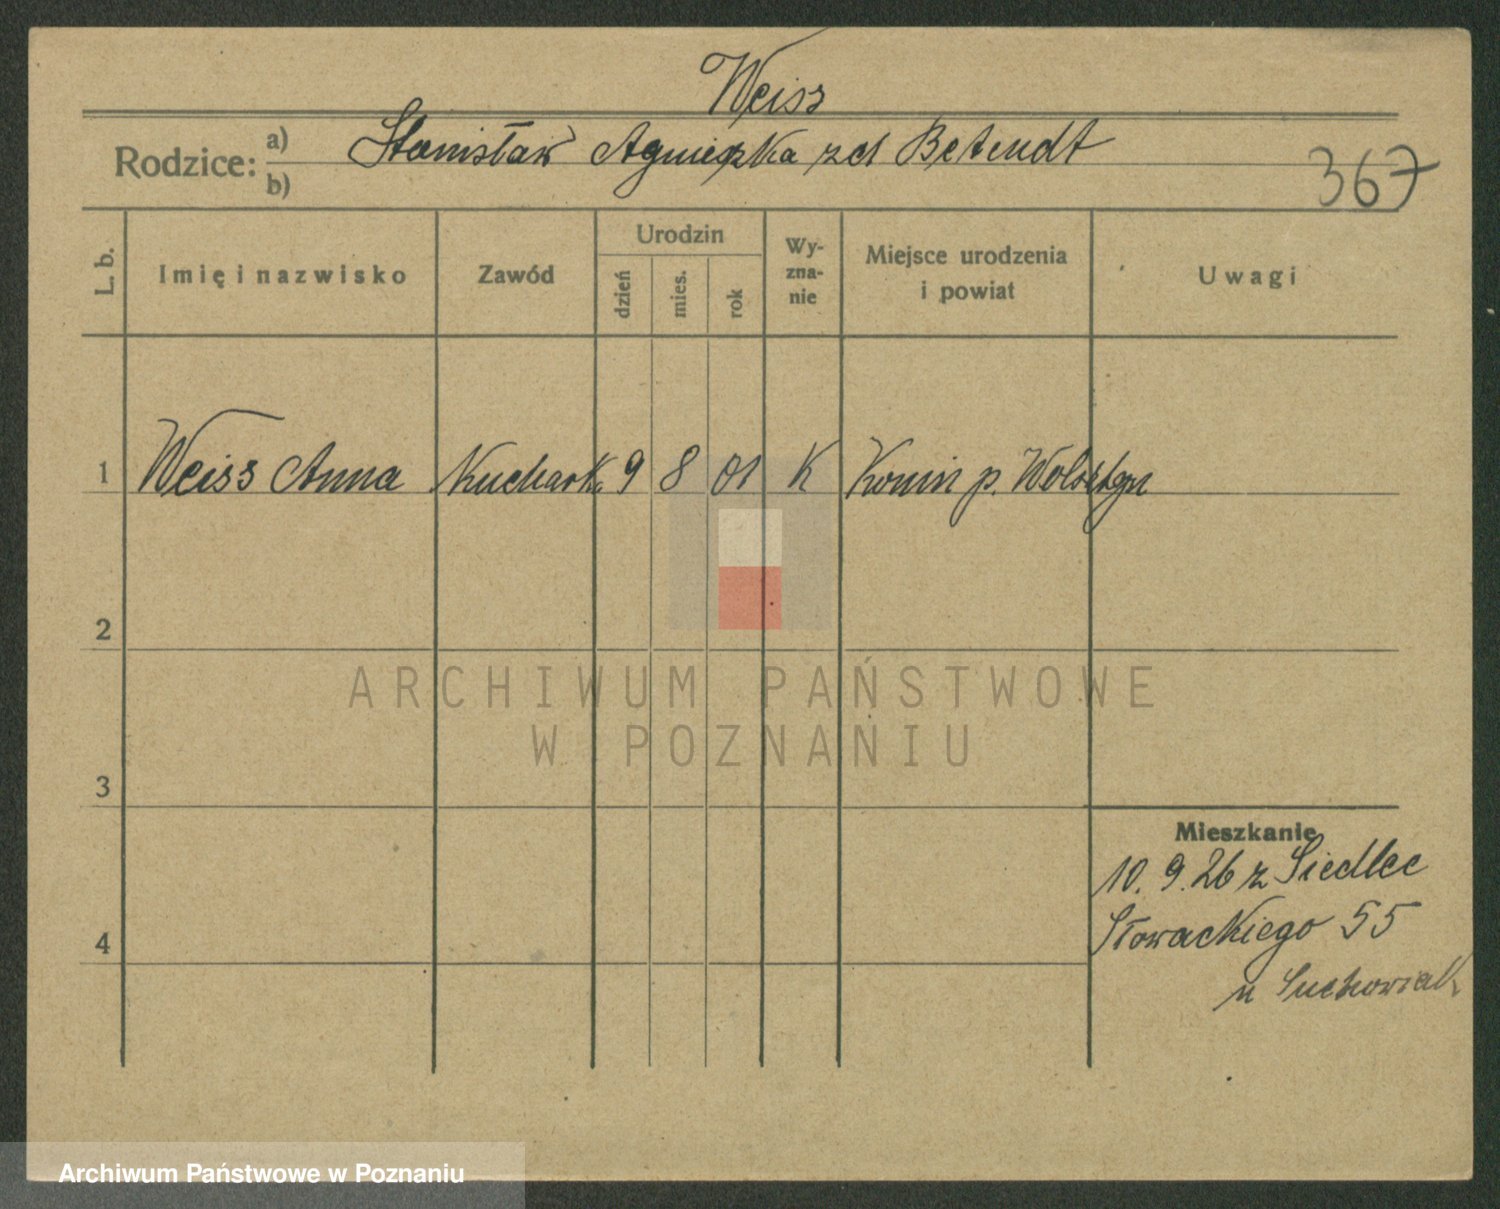 Weiss
Rodzice: a) Stanisław Agnieszka zd Betendt
b)
367
L. b. Imię i nazwisko Zawód Urodzin dzień mies. rok Wy-zna-nie Miejsce urodzenia i powiat Uwagi
1 Weiss Anna Kucharka 9 8 01 K Konin p. Wolsztyn
2
ARCHIWUM PAŃSTWOWE
W POZNANIU
3
Mieszkanie
10. 9. 26 z Siedlec
4 Słowackiego 55
u Suchowiak
Archiwum Państwowe w Poznaniu